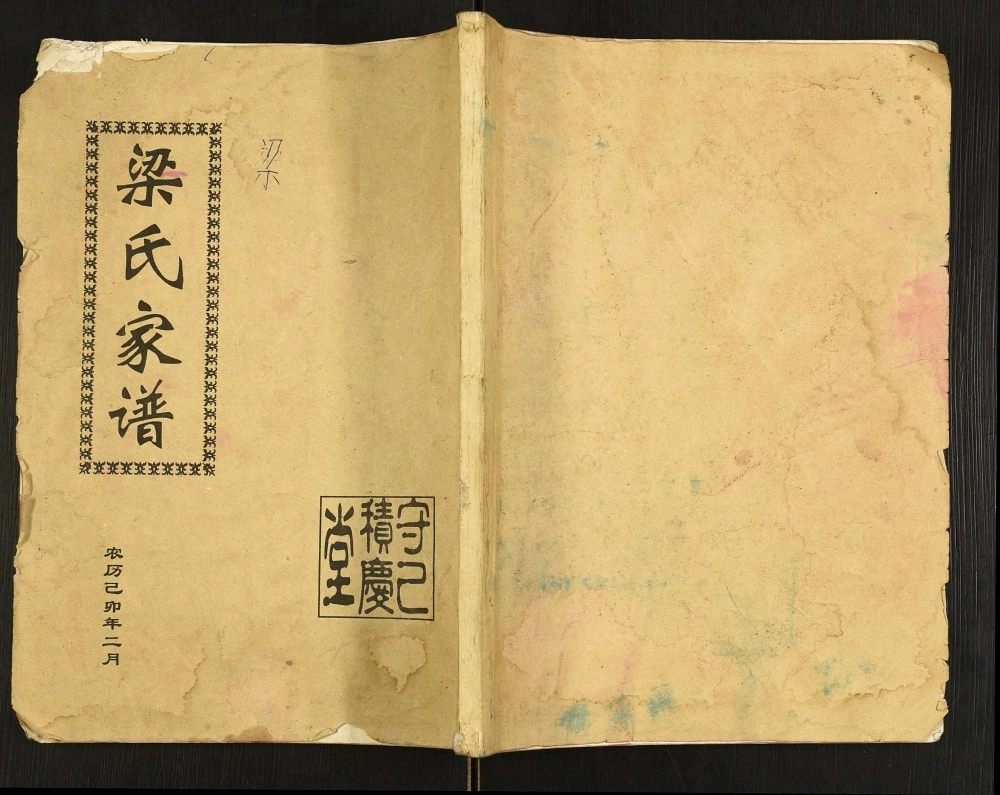 梁氏家谱
梁
农历己卯年二月
守己
積慶
堂